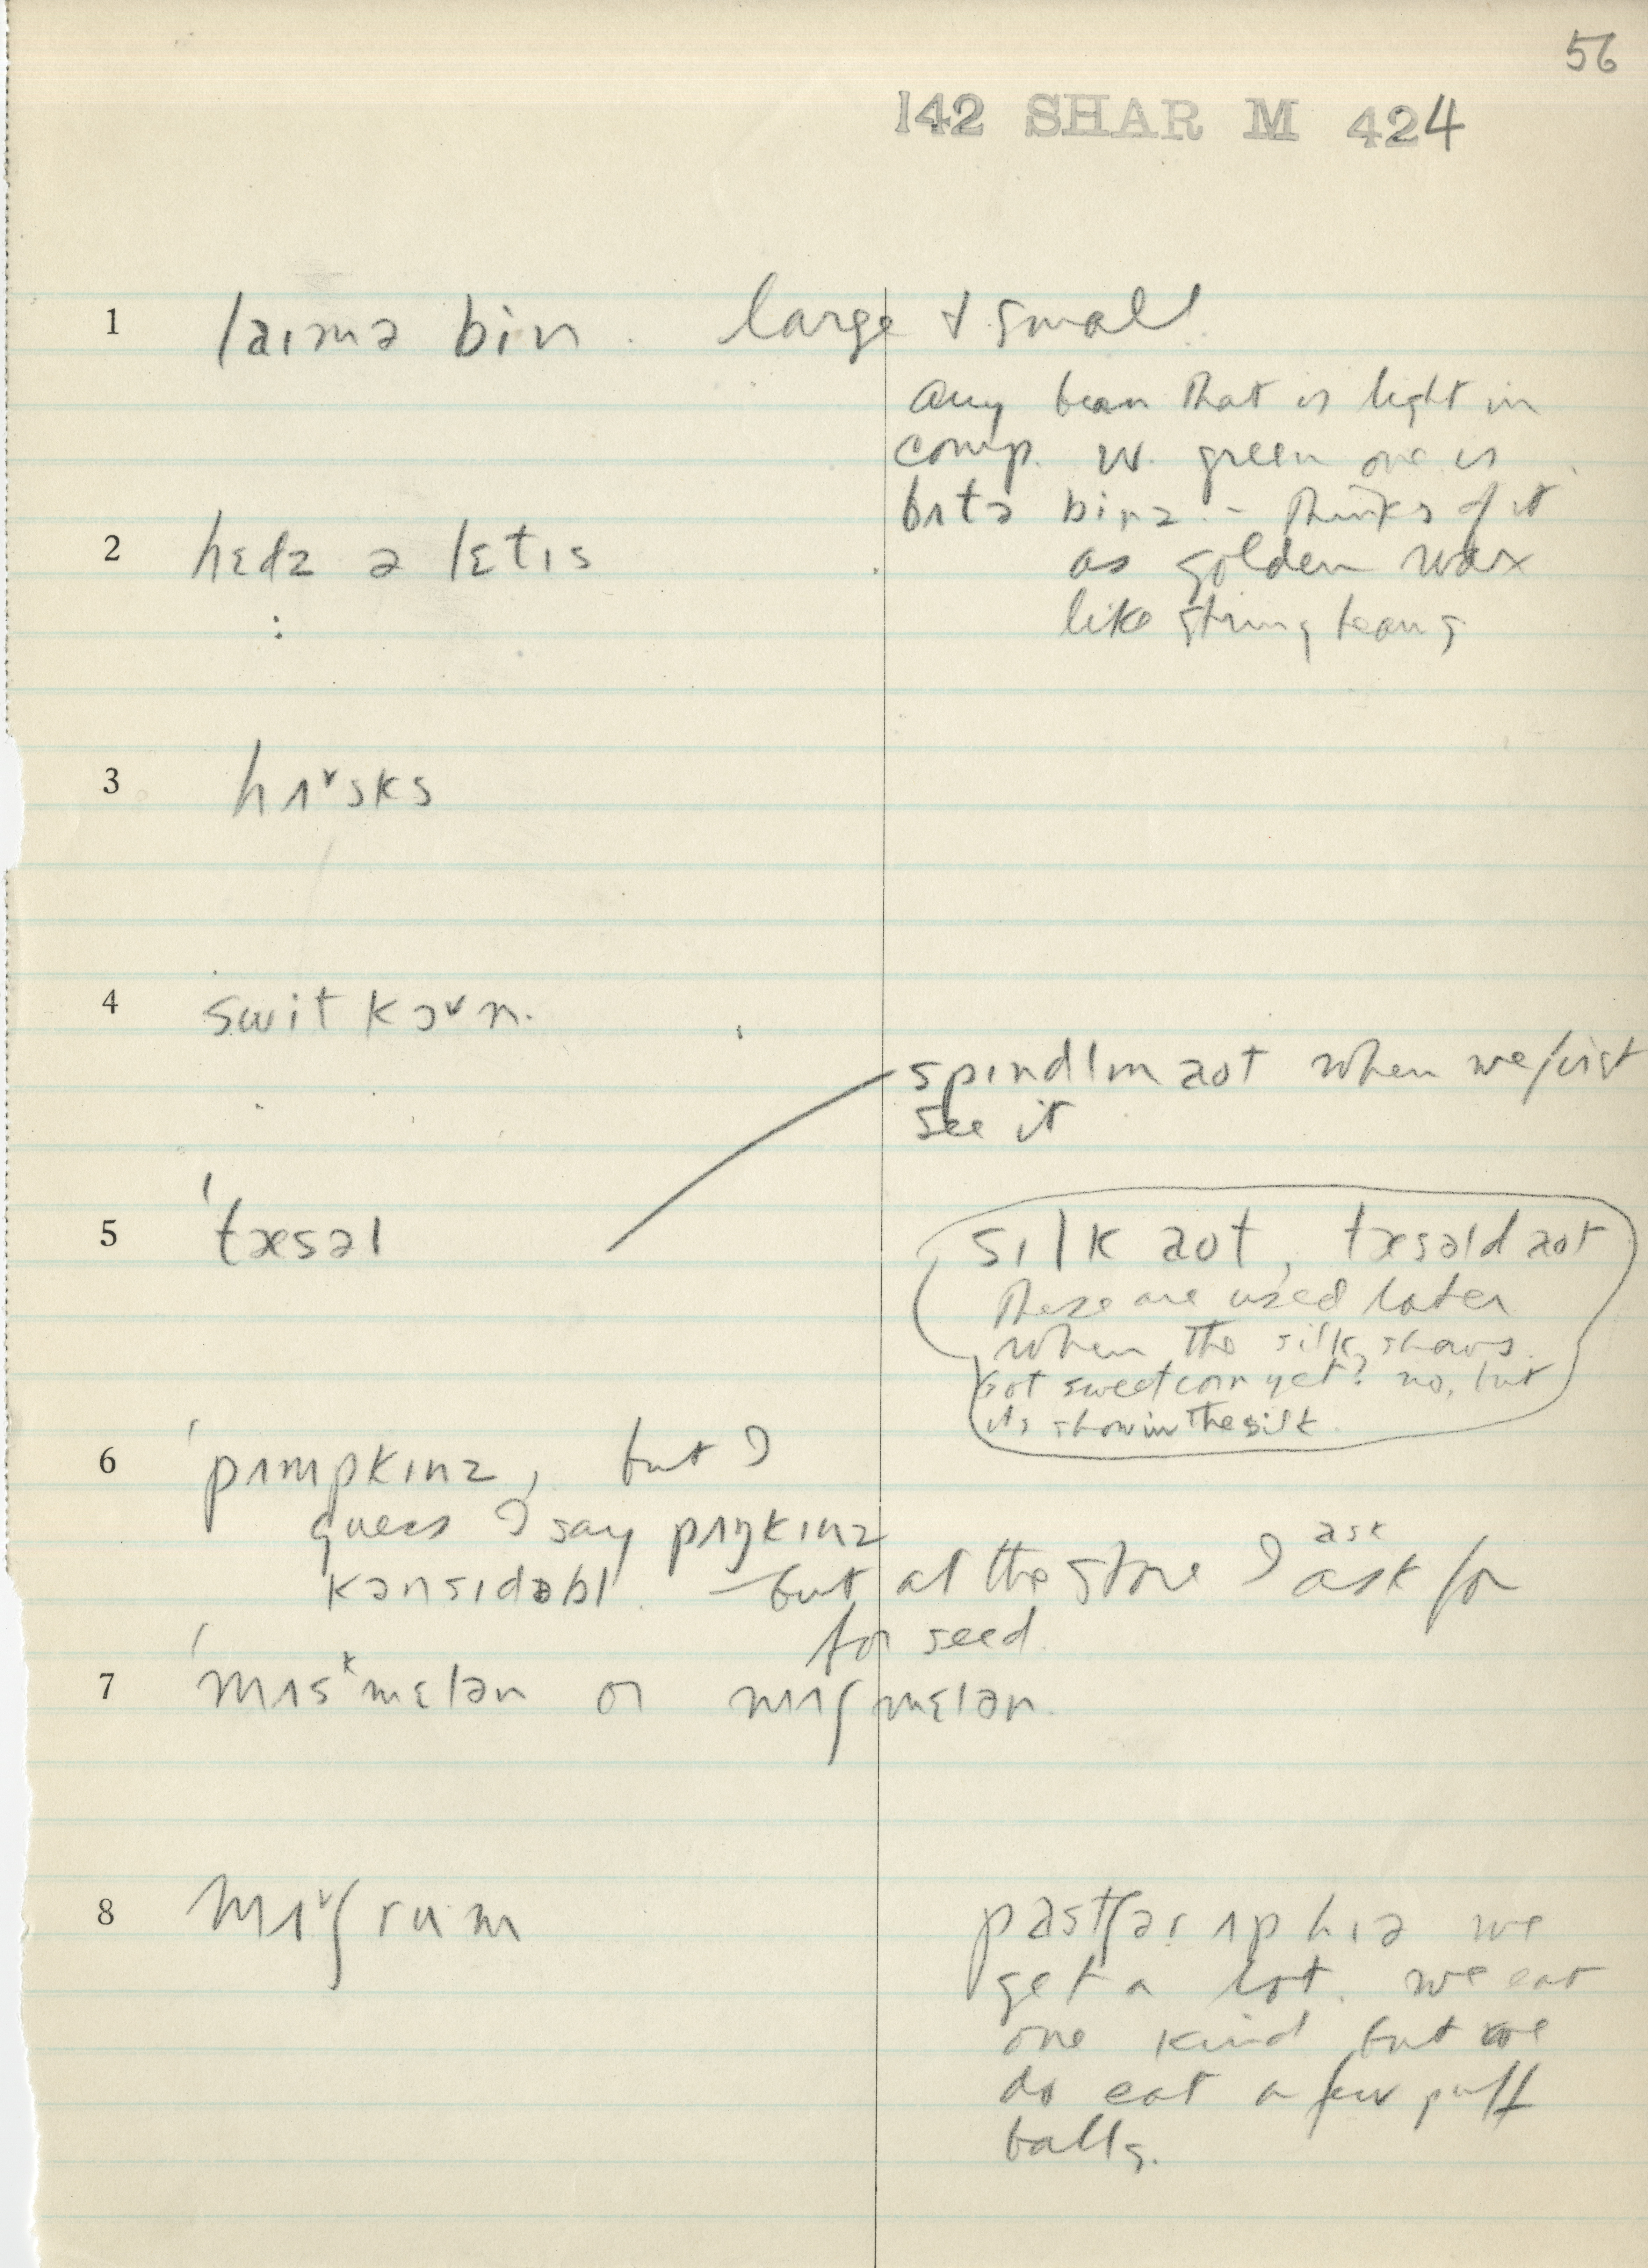 56
142 SHAR M 424
1 laɪmə bin. large & small
any bean that is light in
comp. w. green one is
bʌtə binz - thinks of it
as golden wax
like string beans
2 hɛdz ə lɛtɪs
3 hʌˇsks
4 swit kɔˇn.
spindlɪn aot when we first
see it
5 'tæsəl
sɪlk aot, tæsəld aot
These are used later
when the silk shows.
Got sweet corn yet? no, but
its showin the silk.
6 'pʌmpkɪnz, but I
guess I say pʌŋkɪnz
kənsɪdəbl. but at the store I ask ask for
for seed.
7 'mʌsᵏmɛlən or mʌʃmɛlən.
8 mʌˇʃrum
we
get a lot. we eat
one kind but we
do eat a few puff
balls.